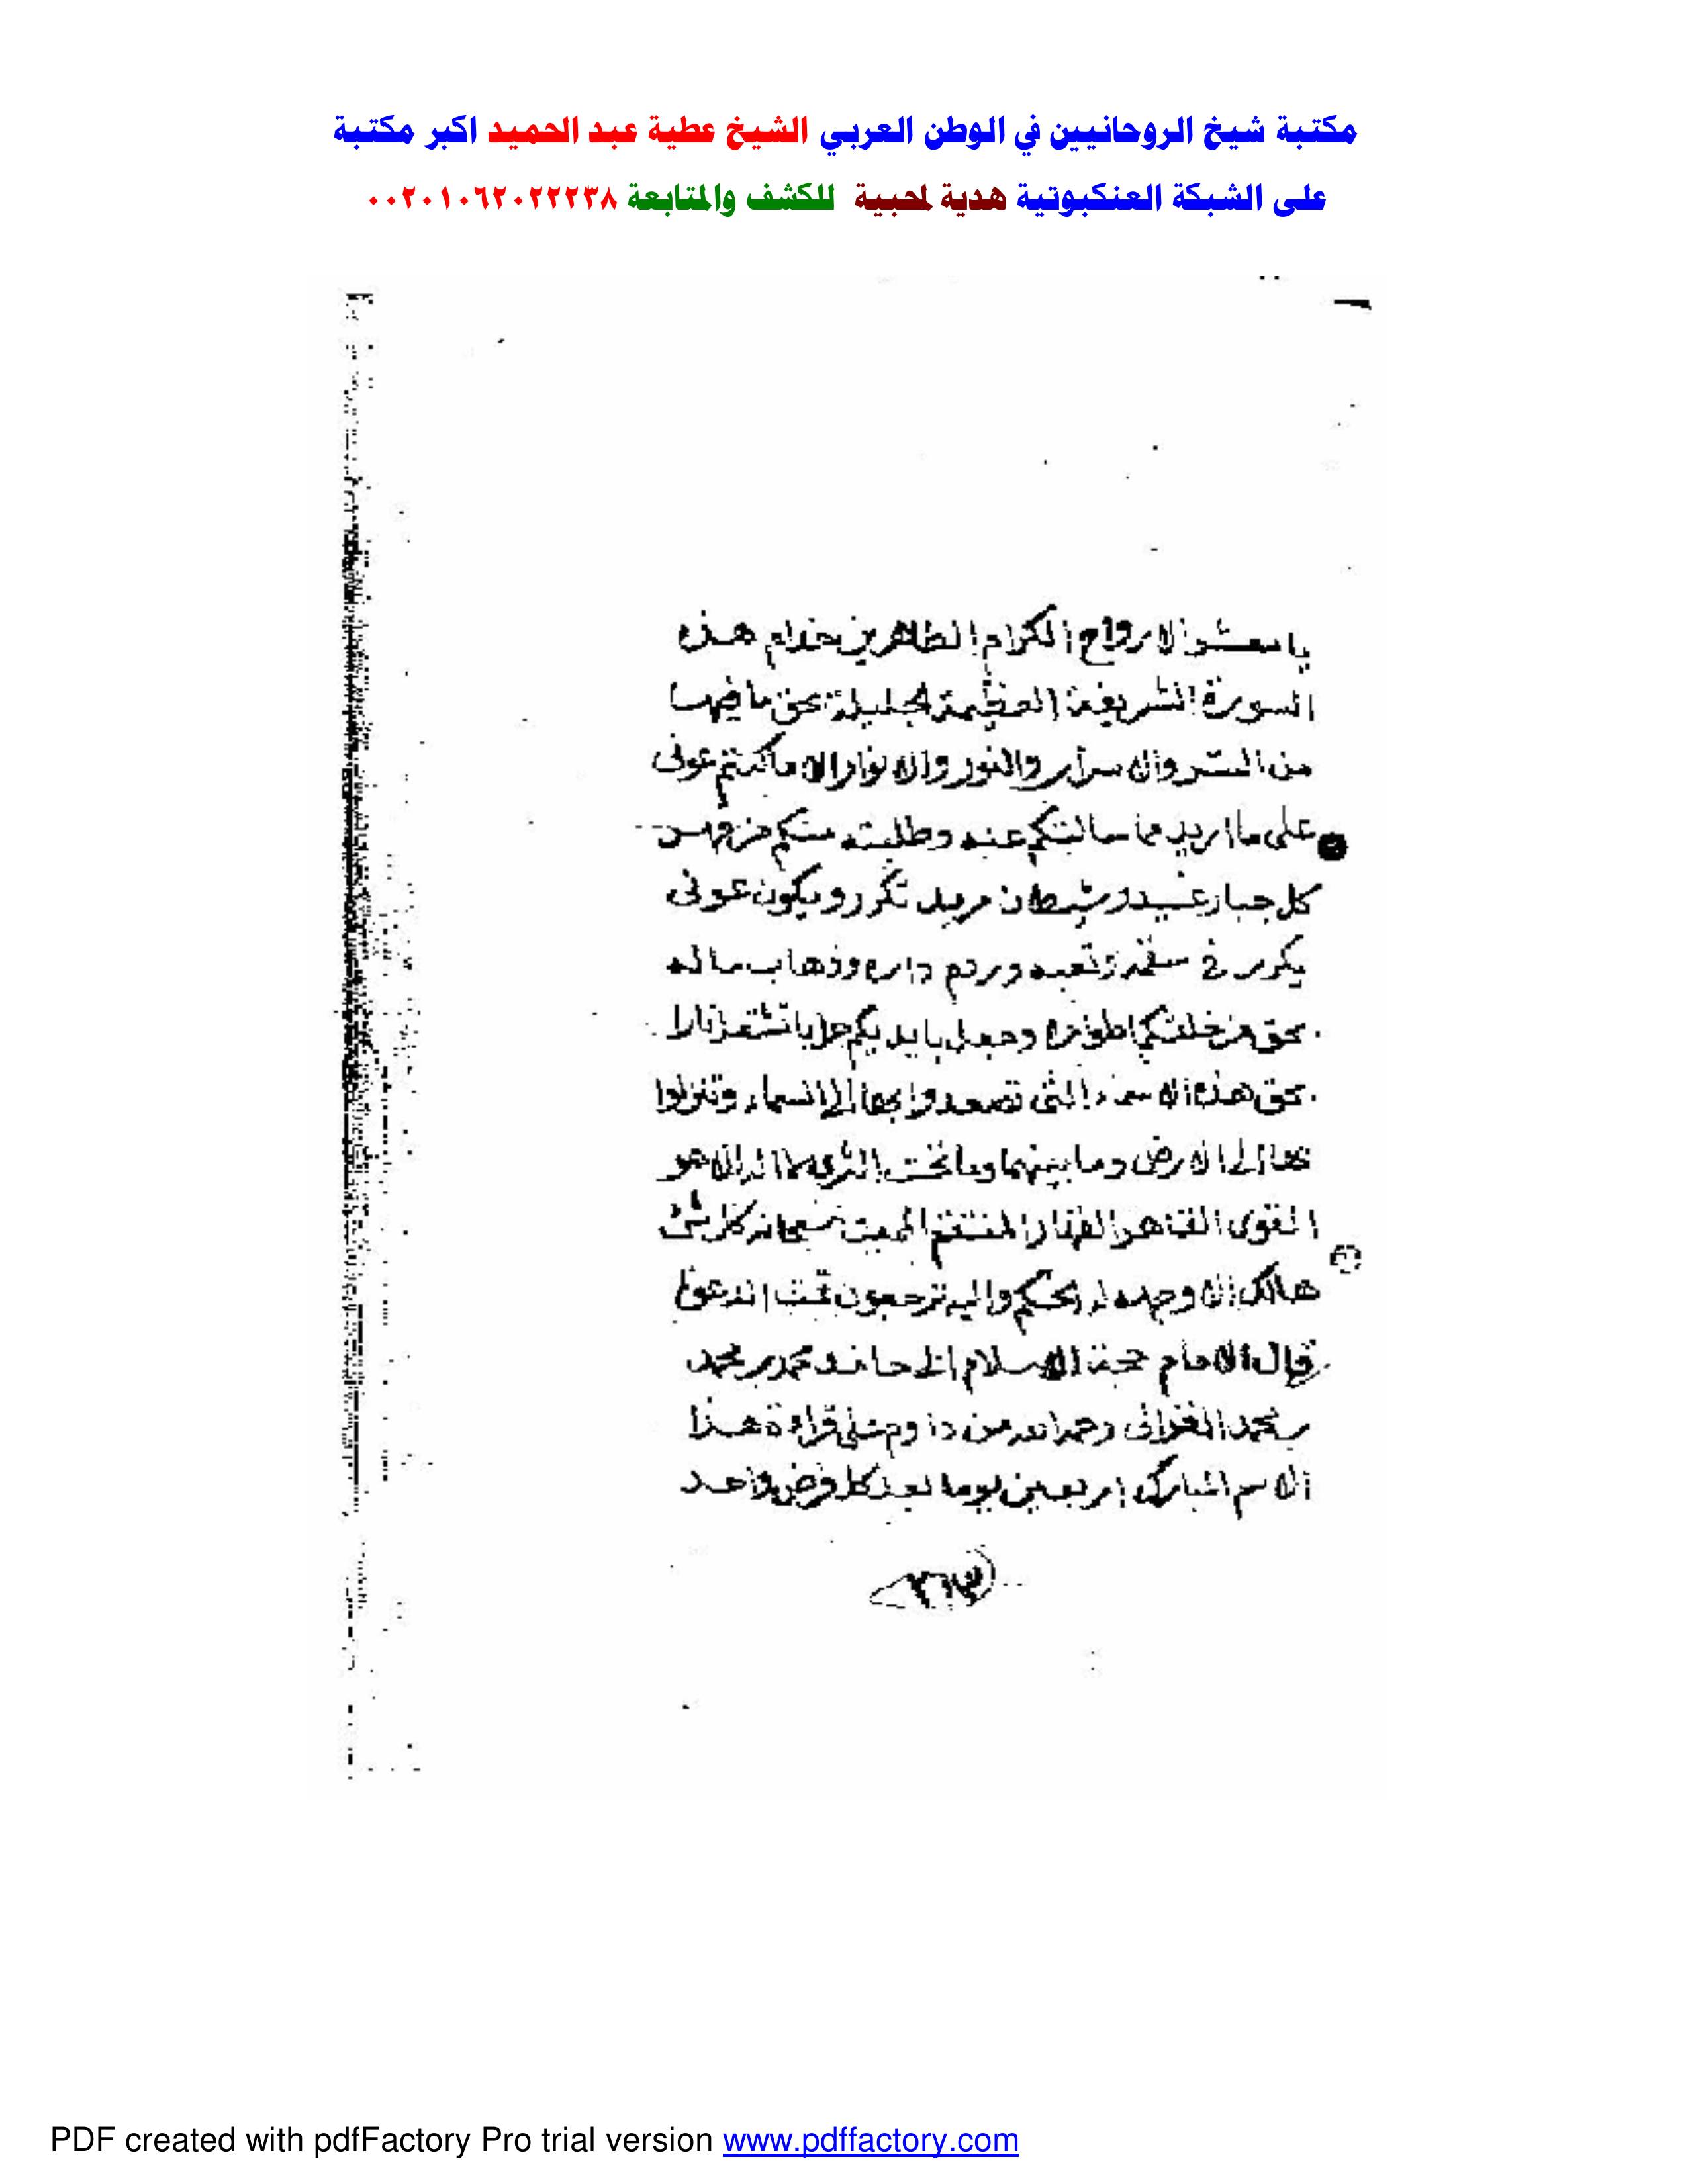 مكتبة شيخ الروحانيين في الوطن العربي الشيخ عطية عبد الحميد اكبر مكتبة
على الشبكة العنكبوتية هدية لمحبية للكشف والمتابعة ٠٠٢٠١٠٦٢٠٢٢٢٣٨
يا معشر الارواح الكرام الطاهرين خدام هذه
السورة الشريفة العظيمة الجليلة بحق ما فيها
من السر والاسرار والنور والانوار الا ما كنتم عونى
على ما اريد مما سالتكم عنه وطلبته منكم
كل جبار عنيد وشيطان مريد تكرر ويكون عونى
يكرر فى وتعبه وردم داره وذهاب ماله
بحق من خلقكم اطوارا وجعل بايديكم نارا
بحق هذه الاسماء التى تصعدوا بها الى السماء وتنزلوا
بها الى الارض وما بينهما وما تحت الثرى الا هو
القوى القاهر القهار المنتقم المميت كل شئ
هالك الا وجهه له الحكم واليه ترجعون تمت الدعوة
قال الامام حجة الاسلام ابى حامد محمد بن محمد
بن محمد الغزالى رحمه الله من داوم على قراءة هذا
الاسم المبارك اربعين يوما بعد كل فرض واحد
PDF created with pdfFactory Pro trial version www.pdffactory.com